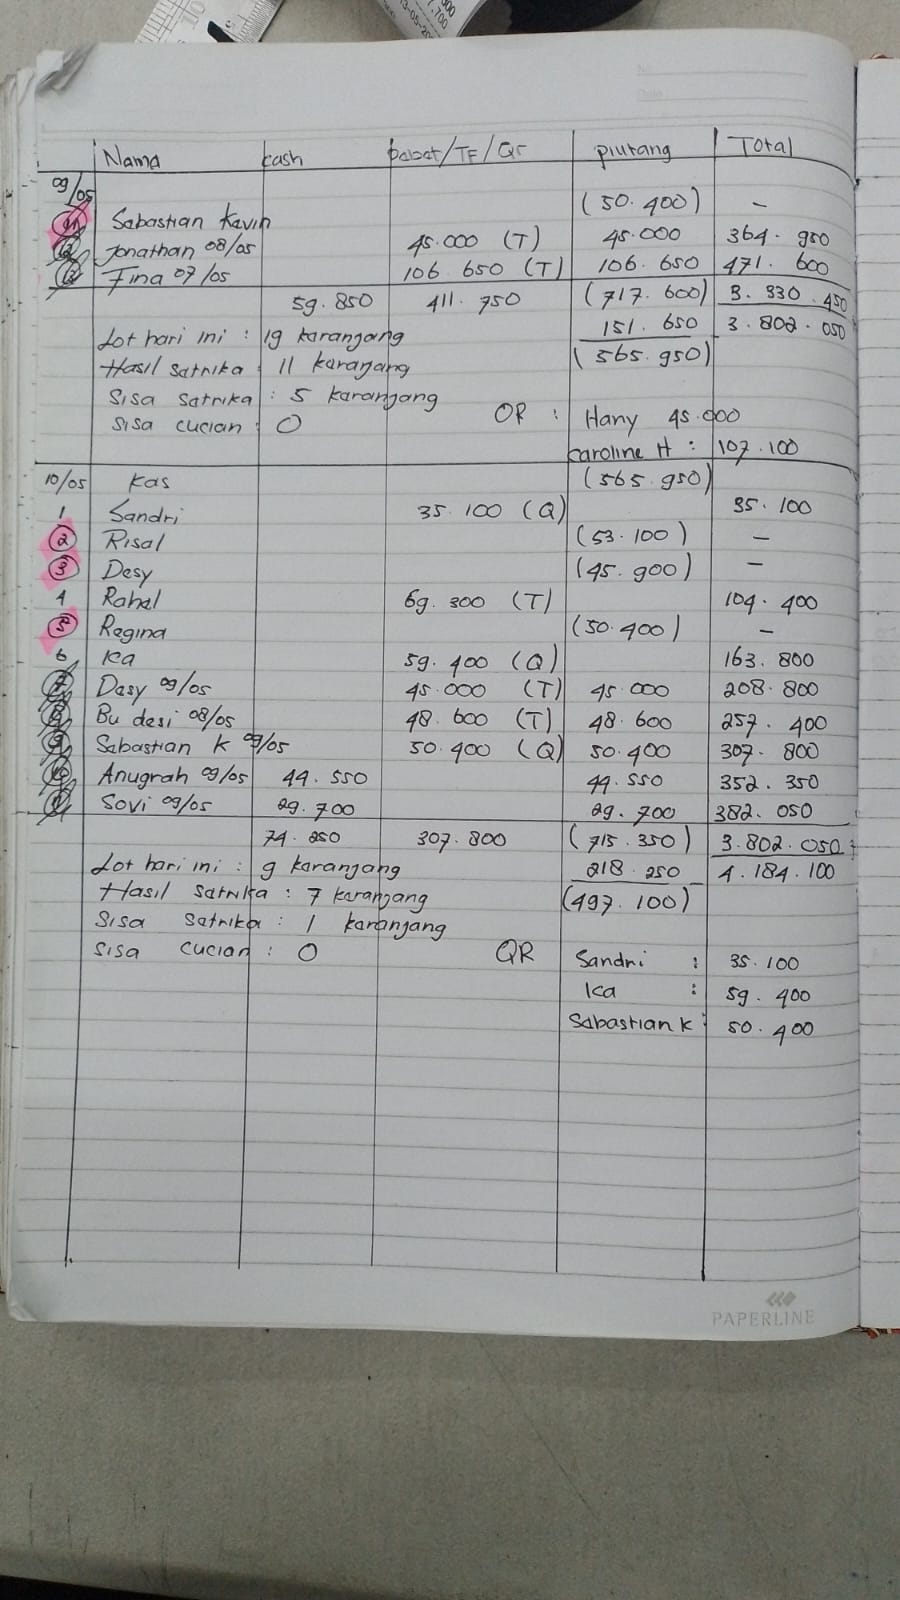 No
Date
Nama cash Debet/TF/Qr piutang Total
09/05
11 Sabastian Kevin (50.400) –
12 Jonathan 08/05 45.000 (T) 45.000 364.950
13 Fina 07/05 106.650 (T) 106.650 471.600
59.850 411.750 (717.600) 3.330.450
Lot hari ini : 19 karangang 151.650 3.802.050
Hasil satrika : 11 karangang (565.950)
Sisa satrika : 5 karangang
Sisa cucian : 0 QR : Hany 45.000
Caroline H : 107.100
10/05 Kas (565.950)
1 Sandri 35.100 (Q) 35.100
2 Risal (53.100) –
3 Desy (45.900) –
4 Rahel 69.300 (T) 104.400
5 Regina (50.400) –
6 Ica 59.400 (Q) 163.800
7 Dasy 09/05 45.000 (T) 45.000 208.800
8 Bu desi 08/05 48.600 (T) 48.600 257.400
9 Sabastian K 09/05 50.400 (Q) 50.400 307.800
10 Anugrah 09/05 44.550 44.550 352.350
11 Sovi 09/05 29.700 29.700 382.050
74.250 307.800 (715.350) 3.802.050
Lot hari ini : 9 karangang 218.250 4.184.100
Hasil satrika : 7 karangang (497.100)
Sisa satrika : 1 karangang
Sisa cucian : 0 QR Sandri : 35.100
Ica : 59.400
Sabastian K : 50.400
PAPERLINE